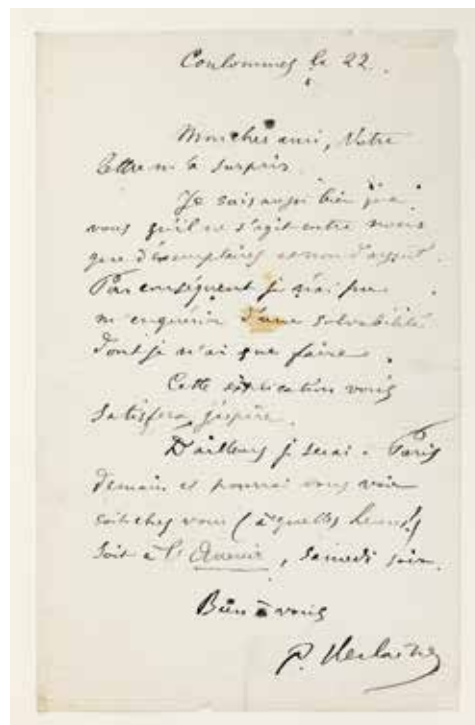 Coulommes le 22.
Mon cher ami, Votre
lettre m'a surpris.
Je sais aussi bien que
vous qu'il ne s'agit entre nous
que d'exemplaires et non d'argent.
Par conséquent je n'ai pu
m'enquérir d'une solvabilité
dont je n'ai que faire.
Cette explication vous
satisfera, j'espère.
D'ailleurs je serai à Paris
demain et pourrai vous voir
soit chez vous (à quelles heures?)
soit à l'Avenir, samedi soir.
Bien à vous
P. Verlaine